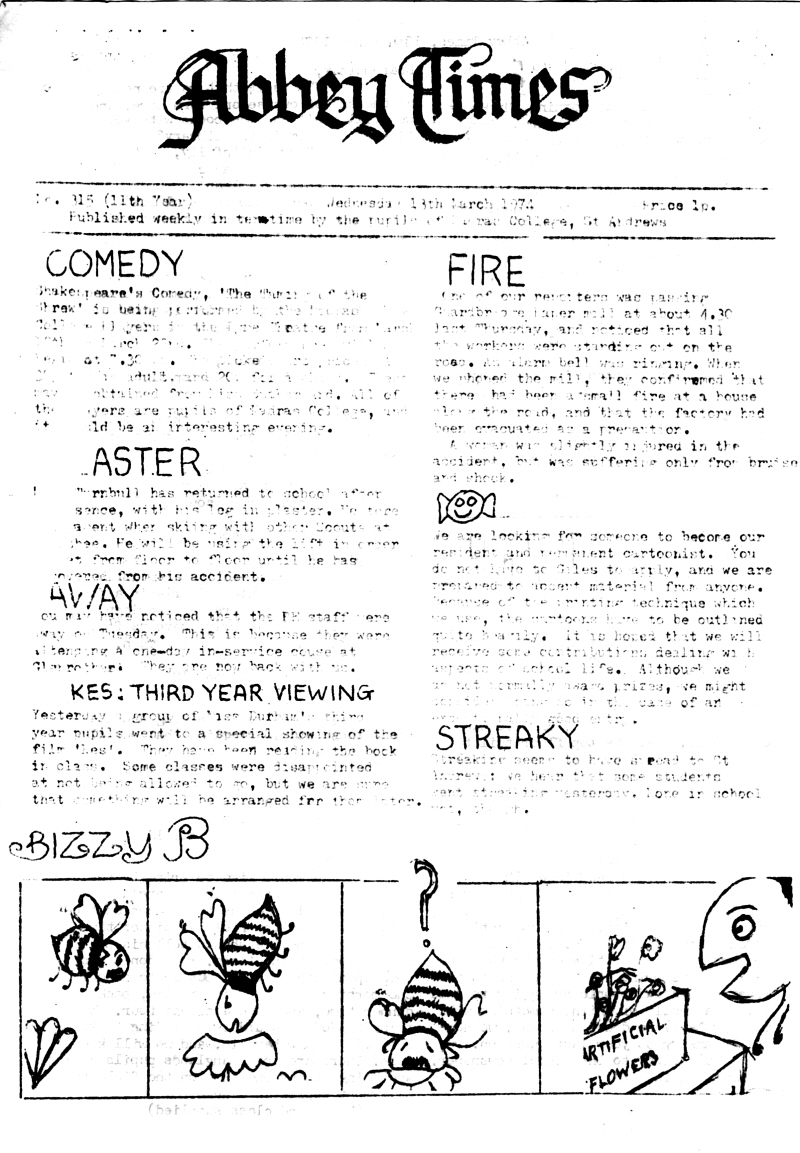 Abbey Times
No. 315 (11th Year) Wednesday 13th March 1974 Price 1p.
Published weekly in termtime by the pupils of Madras College, St Andrews
COMEDY
Shakespeare's Comedy, 'The Taming of the
Shrew' is being performed by the
in the Theatre from
at 7.30
adult and
obtained from all of
the players are pupils of Madras College, and
it should be an interesting evening.
ASTER
Turnbull has returned to school after
sence, with his leg in plaster. He tore
a ligament when skiing with other Scouts at
. He will be using the lift in order
to get from floor to floor until he has
recovered from his accident.
AWAY
You may have noticed that the PE staff were
away on Tuesday. This is because they were
attending a one-day in-service couse at
They are now back with us.
KES: THIRD YEAR VIEWING
Yesterday a group of Miss Durham's third
year pupils went to a special showing of the
film 'Kes'. They have been reading the book
in class. Some classes were disappointed
at not being allowed to go, but we are sure
that something will be arranged for them later.
FIRE
One of our reporters was passing
Guardbridge paper mill at about 4.30
last Thursday, and noticed that all
the workers were standing out on the
road. An alarm bell was ringing. When
we phoned the mill, they confirmed that
there had been a small fire at a house
along the road, and that the factory had
been evacuated as a precaution.
A woman was slightly injured in the
accident, but was suffering only from bruise
and shock.
We are looking for someone to become our
resident and permanent cartoonist. You
do not have to Giles to apply, and we are
prepared to accept material from anyone.
Because of the printing technique which
we use, the cartoons have to be outlined
quite heavily. It is hoped that we will
receive some contributions dealing with
aspects of school life. Although we
do not normally award prizes, we might
in the case of an
entry.
STREAKY
Streaking seems to have spread to St
Andrews: we hear that some students
went streaking yesterday. None in school
yet,
BIZZY B
?
ARTIFICIAL
FLOWERS